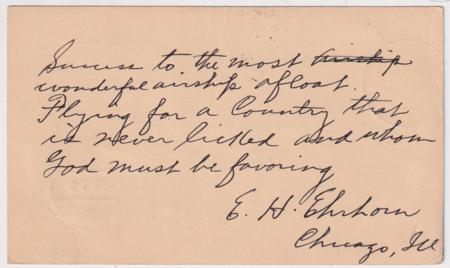 Success to the most ~~airship~~
wonderful airship afloat.
Flying for a Country that
is never licked and whom
God must be favoring
E. H. Ehrhorn
Chicago, Ill